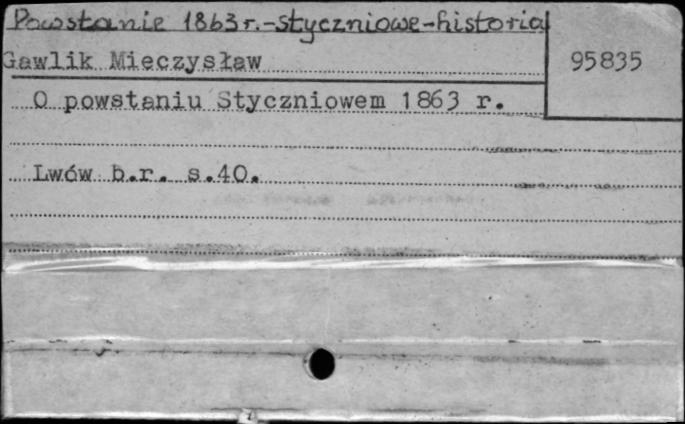 Powstanie 1863 r.-styczniowe-historia
Gawlik Mieczysław
95835
O powstaniu Styczniowem 1863 r.
Lwów b.r. s.40.